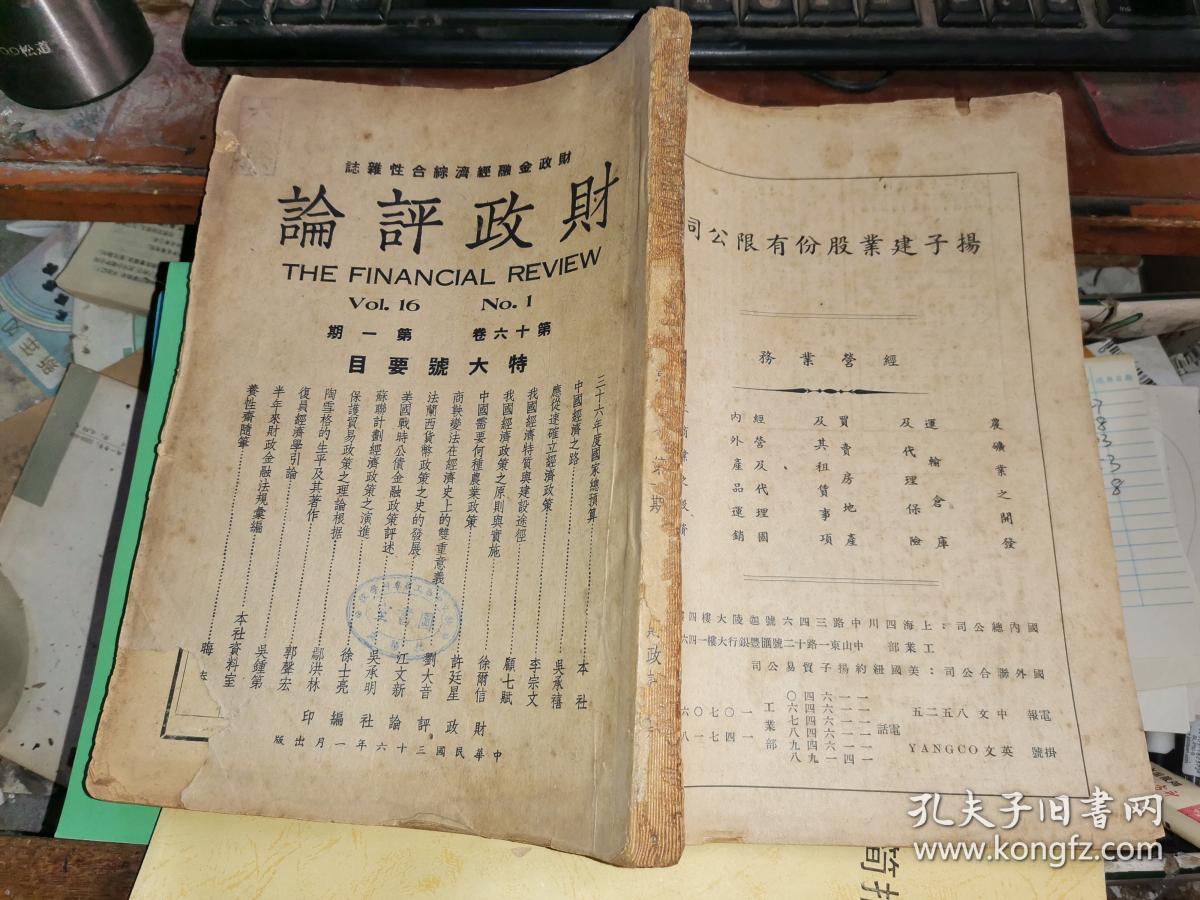 財政金融經濟綜合性雜誌
財政評論
THE FINANCIAL REVIEW
Vol. 16 No. 1
第十六卷 第一期
特大號要目
三十六年度國家總預算……本社
中國經濟之路……吳承禧
應從速確立經濟政策……李宗文
我國經濟特質與建設途徑……顧七賦
我國經濟政策之原則與實施……徐爾信
中國需要何種農業政策……許廷星
商鞅變法在經濟史上的雙重意義……劉大音
法蘭西貨幣政策之史的發展……江文新
美國戰時公債金融政策評述……吳承明
蘇聯計劃經濟政策之演進……徐士亮
保護貿易政策之理論根据……鄢洪林
陶雪格的生平及其著作……郭聲宏
復員經濟學引論……吳鍾第
半年來財政金融法規彙編……本社資料室
養性齋隨筆……晦
財政評論社編印
中華民國三十六年一月出版
圖書室
第一期
揚子建業股份有限公司
經營業務
農礦業之開發
運輸倉庫
及代理保險
買賣房地產
及其租賃事項
經營及代理國
內外產品運銷
國內總公司：上海四川中路三四六號迦陵大樓四
工業部 中山東一路十二號匯豐銀行大樓一四六
國外聯合公司：美國紐約揚子貿易公司
電報掛號 中文 八五二五
英文 YANGCO
電話
一一六四〇
一一六四六
一一六四七
一一六四八
一一六四九
一四一九八
工業部
一〇七〇六
一四七一八
孔夫子旧书网
www.kongfz.com
00松道